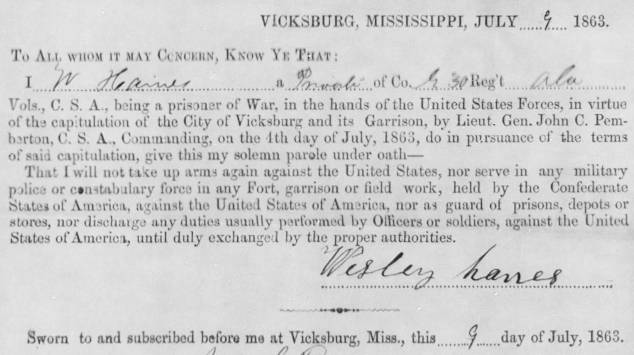 VICKSBURG, MISSISSIPPI, JULY 9 1863.
TO ALL WHOM IT MAY CONCERN, KNOW YE THAT:
I W Haines a Private of Co. G 30 Reg't Ala
Vols., C. S. A., being a prisoner of War, in the hands of the United States Forces, in virtue
of the capitulation of the City of Vicksburg and its Garrison, by Lieut. Gen. John C. Pem-
berton, C. S. A., Commanding, on the 4th day of July, 1863, do in pursuance of the terms
of said capitulation, give this my solemn parole under oath—
That I will not take up arms again against the United States, nor serve in any military
police or constabulary force in any Fort, garrison or field work, held by the Confederate
States of America, against the United States of America, nor as guard of prisons, depots or
stores, nor discharge any duties usually performed by Officers or soldiers, against the United
States of America, until duly exchanged by the proper authorities.
Wesley
Sworn to and subscribed before me at Vicksburg, Miss., this 9 day of July, 1863.